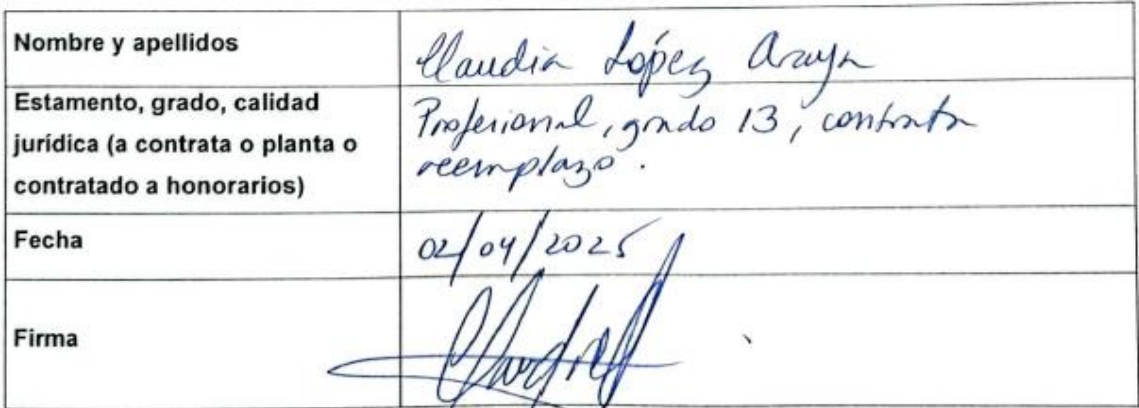 Nombre y apellidos
Claudia López Araya
Estamento, grado, calidad
jurídica (a contrata o planta o
contratado a honorarios)
Profesional, grado 13, contrata
reemplazo.
Fecha
02/04/2025
Firma